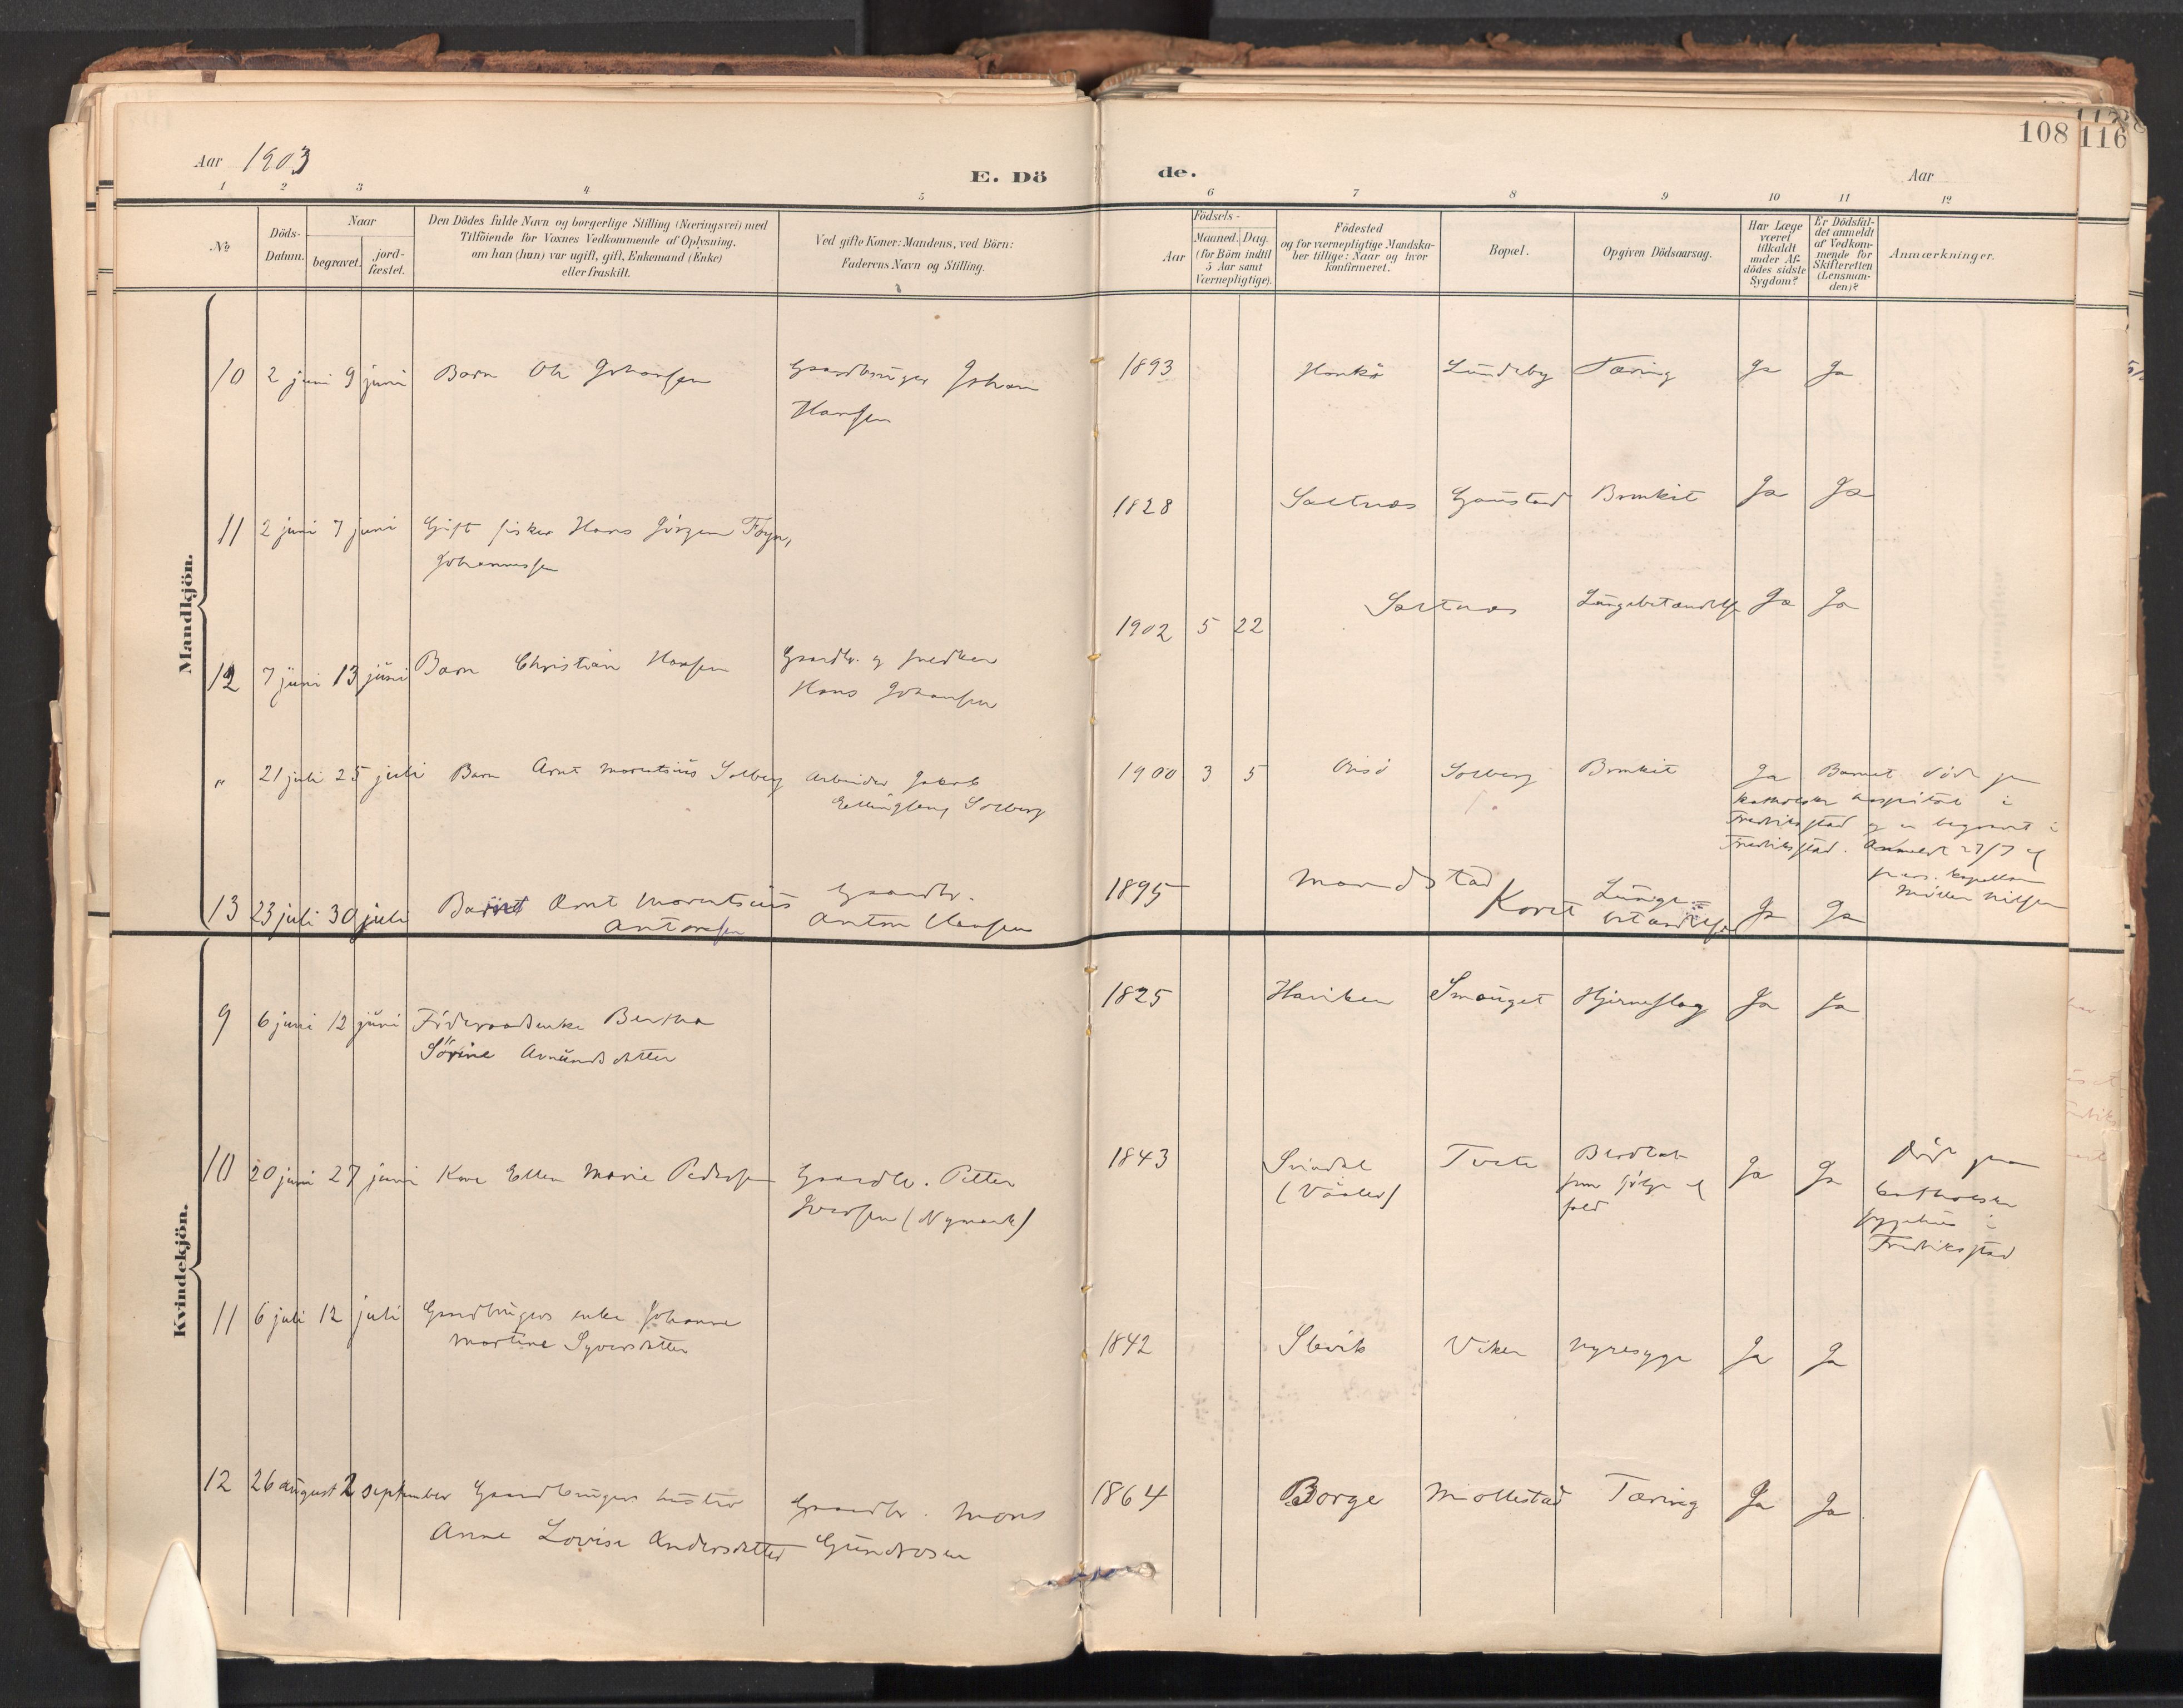 Aar 1903
E. Dö
de.
Aar
108
116
1 2 3 4 5
6 7 8 9 10 11 12
No
Döds-
Datum.
Naar
begravet.
jord-
fæstet.
Den Dödes fulde Navn og borgerlige Stilling (Næringsvei) med
Tilföiende for Voxnes Vedkommende af Oplysning,
om han (hun) var ugift, gift, Enkemand (Enke)
eller fraskilt.
Ved gifte Koner: Mandens, ved Börn:
Faderens Navn og Stilling.
Födsels-
Aar
Maaned. Dag.
(for Börn indtil
5 Aar samt
Værnepligtige).
Födested
og for værnepligtige Mandska-
ber tillige: Naar og hvor
konfirmeret.
Bopæl.
Opgiven Dödsaarsag.
Har Læge
været
tilkaldt
under Af-
dödes sidste
Sygdom?
Er Dödsfal-
det anmeldt
af Vedkom-
mende for
Skifteretten
(Lensman-
den)?
Anmærkninger.
Mandkjön.
10 2 juni 9 juni Barn Ole Johansen Gaardbruger Johan
Hansen
1893 Hankø Lundeby Tæring Ja Ja
11 2 juni 7 juni Gift fisker Hans Jörgen Föyn,
Johannessen
1828 Saltnæs Gaustad Bronkit Ja Ja
12 7 juni 13 juni Barn Christian Hansen Gaardbr. og snedker
Hans Johansen
1902 5 22 Saltnæs Lungebetændelse Ja Ja
" 21 juli 25 juli Barn Arnt Morentsius Solberg Arbeider Jakob
Ellingsen, Solberg
1900 3 5 Onsö Solberg Bronkit Ja Barnet döde paa
katholske hospital i
Fredriksstad og er begravet i
Fredriksstad. Anmeldt 27/7 af
pers. kapellan
Möller Nilsen
13 23 juli 30 juli Barnet Arnt Morentsius
Antonsen
Gaardbr.
Anton Hansen
1895 Mordstad Koret Lunge-
betændelse Ja Ja
Kvindekjön.
9 6 juni 12 juni Föderaadsenke Bertha
Sörine Arnundsdatter
1825 Haviken Smauget Hjerneslag Ja Ja
10 20 juni 27 juni Kone Ellen Marie Pedersen Gaardbr. Petter
Iversen (Nymark)
1843 Svindal
(Vaaler)
Tvete Blodtab
som fölge af
fald
Ja Ja Död paa
katholske
sygehus i
Fredriksstad
11 6 juli 12 juli Gaardbrugers enke Johanne
Martine Syversdatter
1842 Slevik Viker Nyresyge Ja Ja
12 26 august 2 september Gaardbrugers hustru
Anne Lovise Andersdatter
Gaardbr. Mons
Gundrosen
1864 Borge Mollestad Tæring Ja Ja